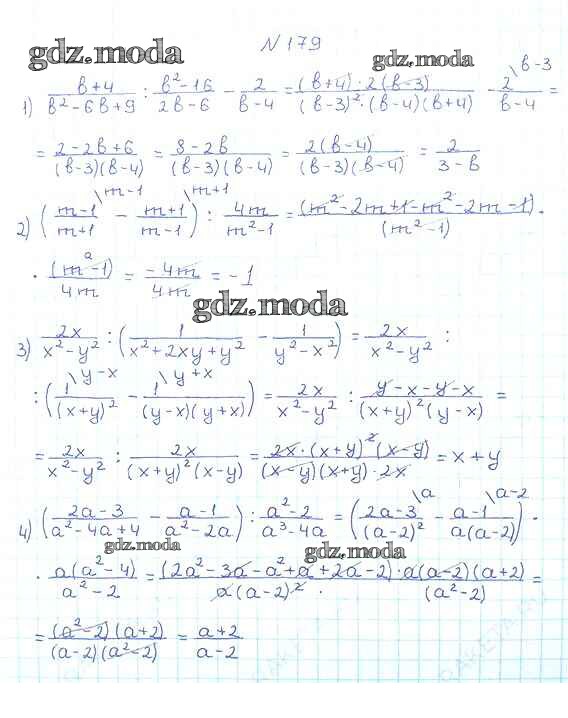 gdz.moda
N 179
gdz.moda
1) (b+4)/(b²-6b+9) : (b²-16)/(2b-6) - 2/(b-4) = ((b+4)·2(b-3))/((b-3)²·(b-4)(b+4)) - 2\b-3/(b-4) =
= (2-2b+6)/((b-3)(b-4)) = (8-2b)/((b-3)(b-4)) = (2(b-4))/((b-3)(b-4)) = 2/(3-b)
2) ((m-1)\m-1/(m+1) - (m+1)\m+1/(m-1)) : 4m/(m²-1) = (m²-2m+1-m²-2m-1)/(m²-1) ·
· (m²-1)/4m = -4m/4m = -1
gdz.moda
3) 2x/(x²-y²) : (1/(x²+2xy+y²) - 1/(y²-x²)) = 2x/(x²-y²) :
: (1\y-x/(x+y)² - 1\y+x/((y-x)(y+x))) = 2x/(x²-y²) : (y-x-y-x)/((x+y)²(y-x)) =
= 2x/(x²-y²) : 2x/((x+y)²(x-y)) = (2x·(x+y)²(x-y))/((x-y)(x+y)·2x) = x+y
4) ((2a-3)/(a²-4a+4) - (a-1)/(a²-2a)) : (a²-2)/(a³-4a) = ((2a-3)\a/(a-2)² - (a-1)\a-2/(a(a-2))) ·
gdz.moda
gdz.moda
· a(a²-4)/(a²-2) = ((2a²-3a-a²+a+2a-2)·a(a-2)(a+2))/(a(a-2)²·(a²-2)) =
= ((a²-2)(a+2))/((a-2)(a²-2)) = (a+2)/(a-2)